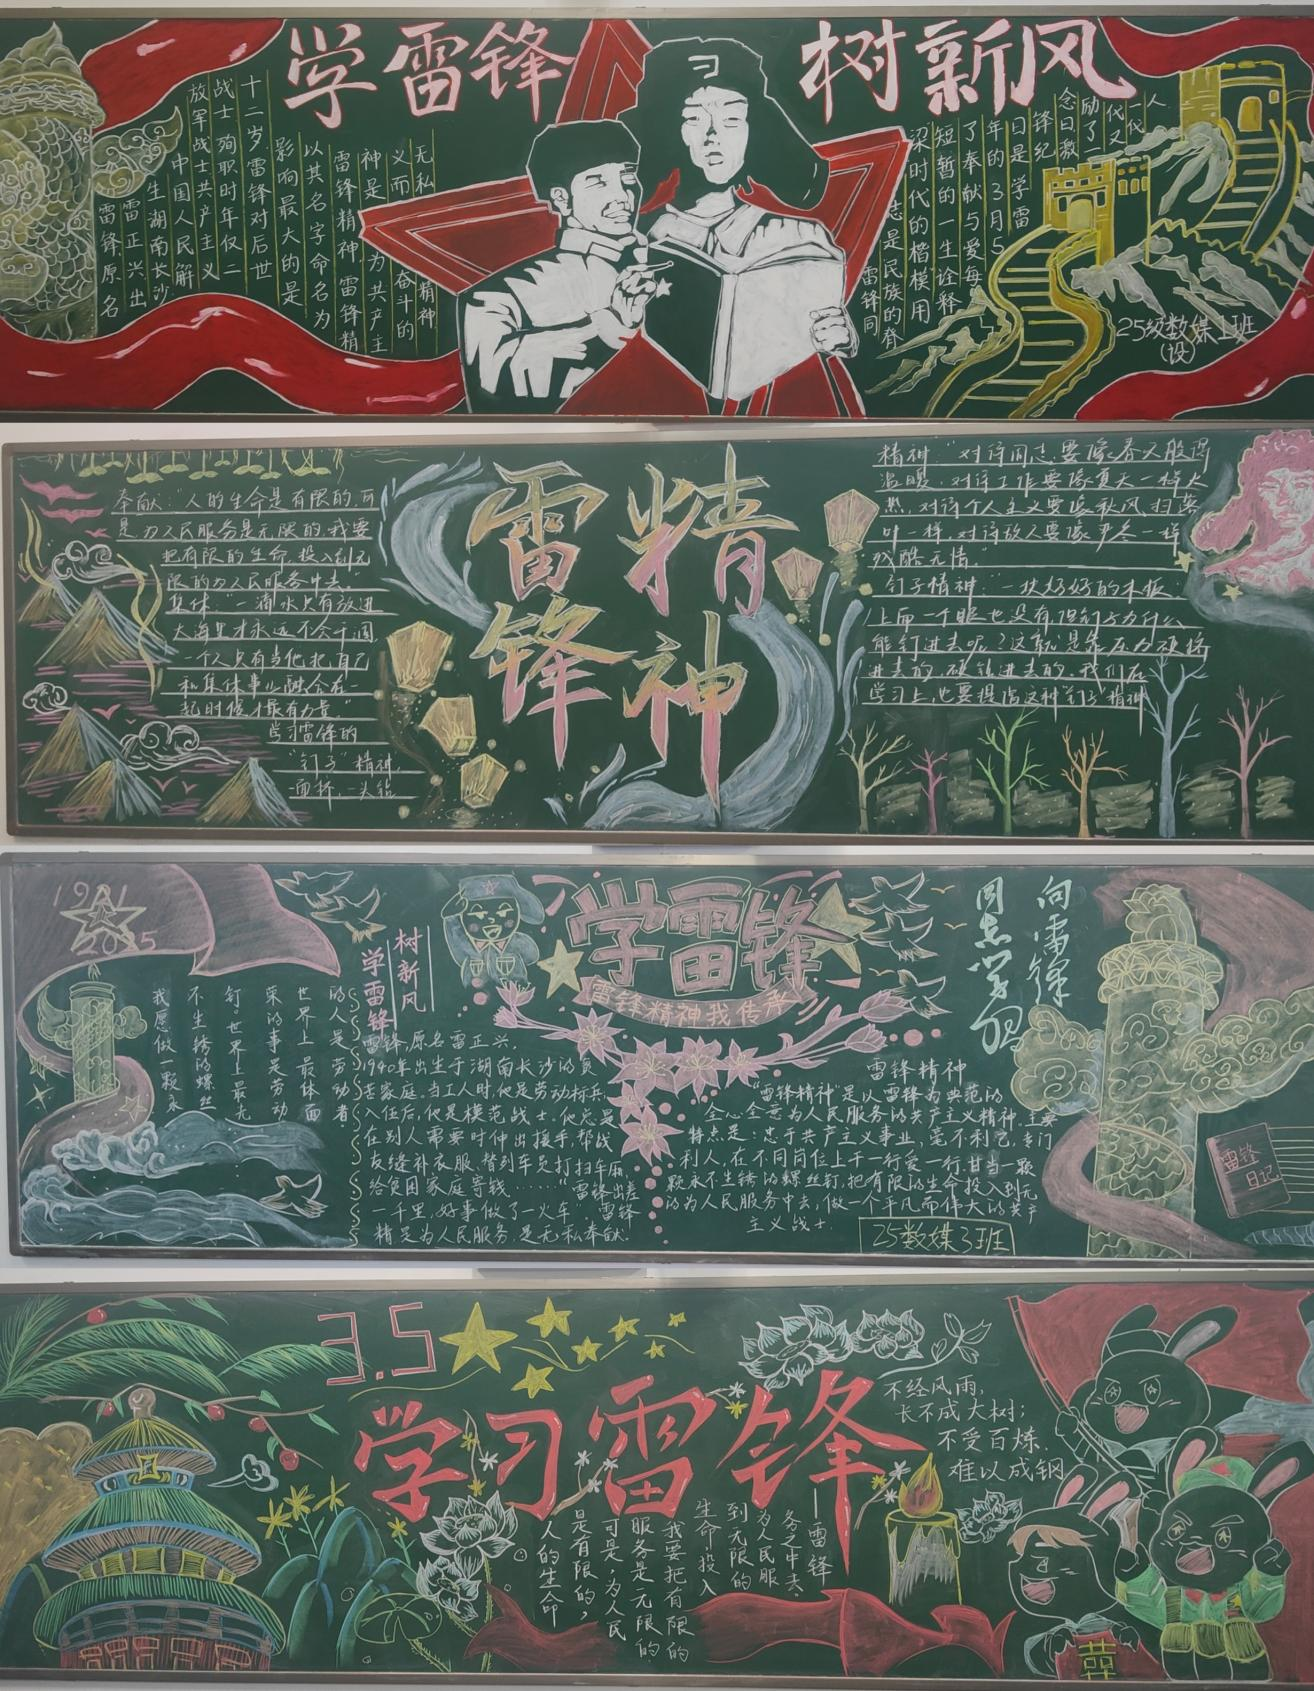 学雷锋
树新风
雷锋,原名
雷正兴,出
生湖南长沙.
中国人民解
放军战士共产主义
战士,殉职时年仅二
十二岁.雷锋对后世
影响最大的是
以其名字命名为
雷锋精神.雷锋精
神是
为共产主
义而奋斗的
无私
精神
人
一代又一代
励了
念日激
锋纪
日是学雷
年的3月5
了奉献与爱每
短暂的一生诠释
梁时代的楷模用
志是民族的脊
雷锋同
25级数媒1班
(设)
雷锋
精神
奉献:“人的生命是有限的,可
是,为人民服务是无限的,我要
把有限的生命,投入到无
限的为人民服务中去。”
集体:“一滴水只有放进
大海里才永远不会干涸
一个人只有当他把自己
和集体事业融合在一
起时候才最有力量。”
学习雷锋的
“钉子”精神,
一面挤,一头钻
精神“对待同志要像春天般得
温暖,对待工作要像夏天一样火
热,对待个人主义要像秋风扫落
叶一样,对待敌人要像严冬一样
残酷无情。”
钉子精神:“一块好好的木板,
上面一个眼也没有,但钉子为什么
能钉进去呢?这就是靠压力硬挤
进去的,硬钻进去的,我们在
学习上,也要提倡这种“钉子”精神
1921
2025
我愿做一颗永
不生锈的螺丝
钉。世界上最光
荣的事是劳动
世界上最体面
的人是劳动者
学雷锋
树新风
学雷锋
雷锋精神我传承
向雷锋
同志学习
雷锋,原名雷正兴.
1940年出生于湖南长沙的贫
苦家庭.当工人时,他是劳动标兵,
入伍后,他是模范战士.他总是
在别人需要时伸出援手,帮战
友缝补衣服、替列车员打扫车厢、
给贫困家庭寄钱……“雷锋出差
一千里,好事做了一火车”.雷锋
精定为人民服务,是无私奉献.
雷锋精神
“雷锋精神”是以雷锋为典范的
全心全意为人民服务的共产主义精神.主要
特点是:忠于共产主义事业,毫不利己,专门
利人,在不同岗位上干一行爱一行.甘当一颗
颗永不生锈的螺丝钉,把有限的生命投入到无
的为人民服务中去,做一个平凡而伟大的共产
主义战士.
25数媒3班
雷锋
日记
3.5
学习雷锋
不经风雨,
长不成大树;
不受百炼,
难以成钢
人的生命
是有限的,
可是,为人民
服务是无限的
我要把有限的
生命,投入
到无限的
为人民服
务之中去.
——雷锋